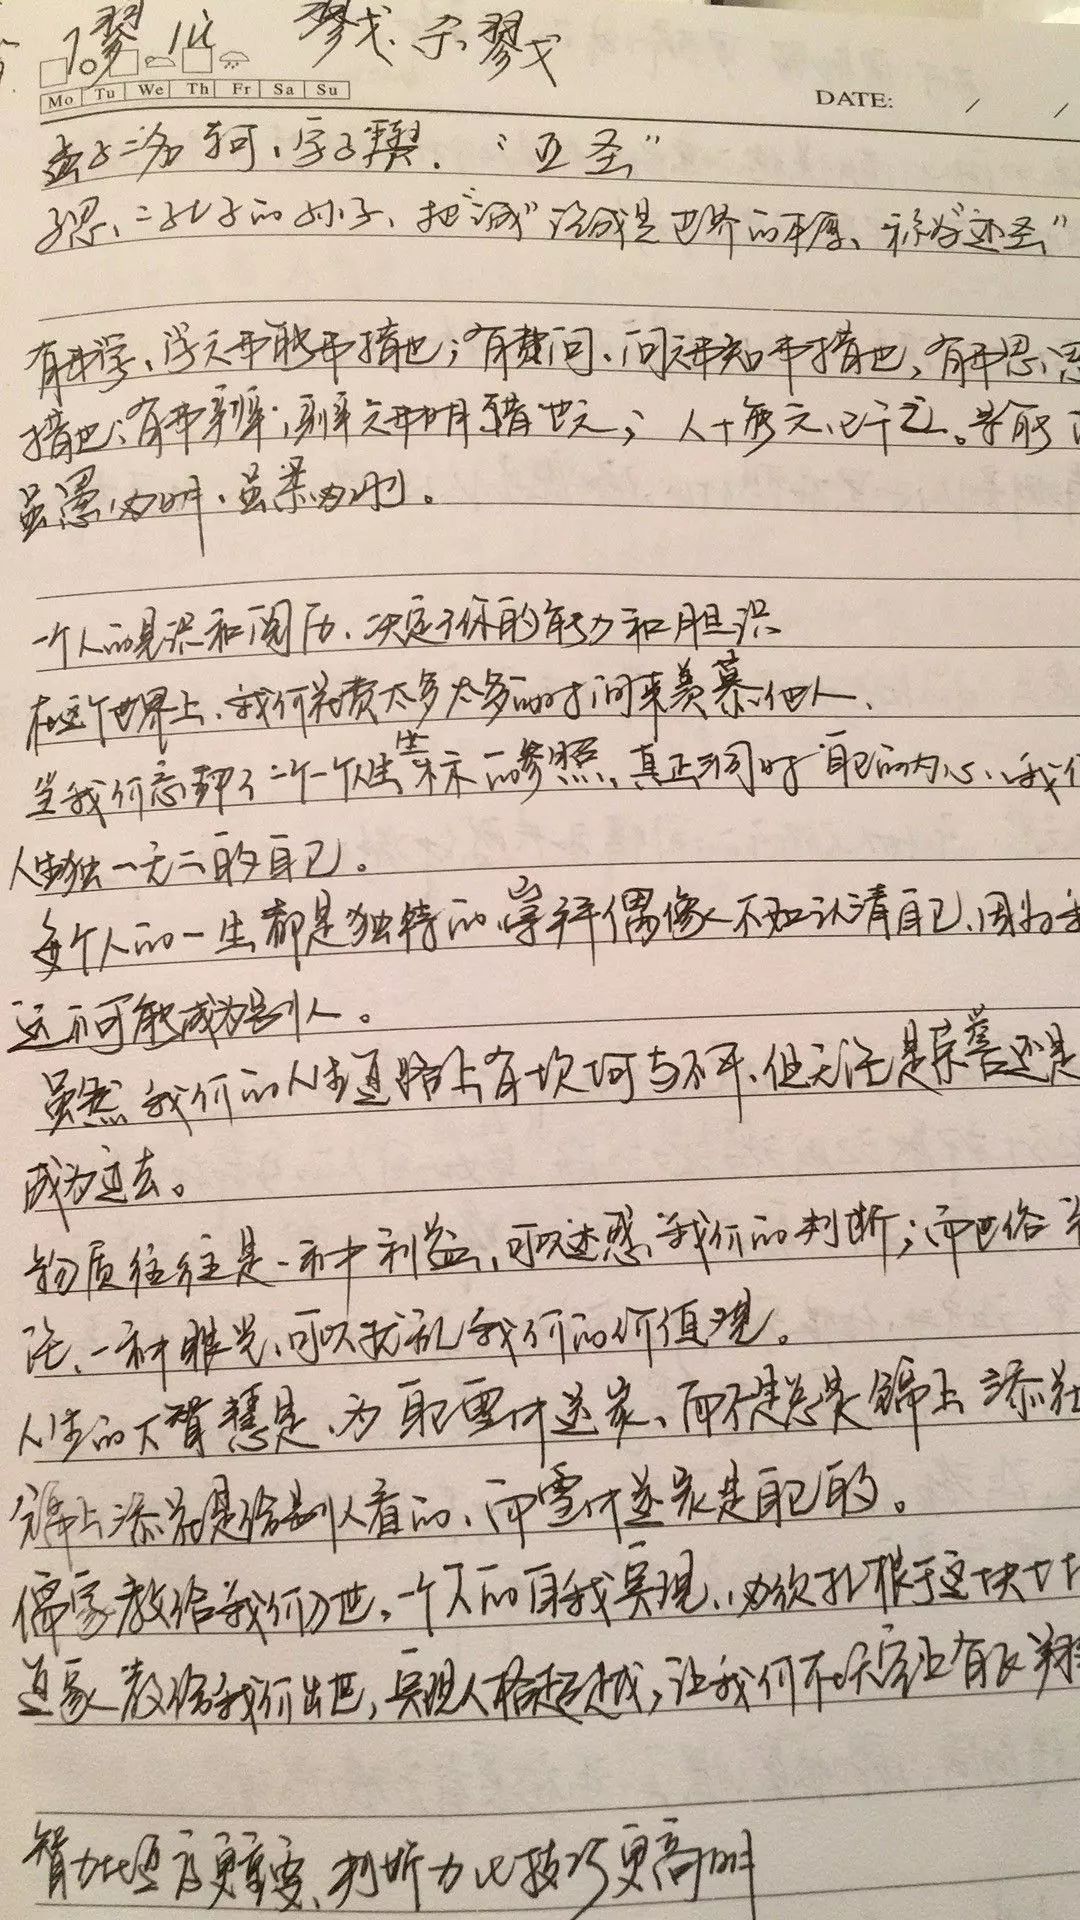 戮、杀戮
Mo Tu We Th Fr Sa Su
DATE: / /
孟子：名轲，字子舆.“亚圣”
子思：孔子的孙子，把“诚”说成是世界的本原，称为“述圣”
有弗学，学之弗能弗措也；有弗问，问之弗知弗措也，有弗思，思
措也；有弗辨，辨之弗明弗措也；人十能之，己千之。果能
虽愚必明，虽柔必刚。
一个人的见识和阅历，决定了你的能力和胆识
在这个世界上，我们花费太多太多的时间来羡慕他人，
当我们忘却了一个个人生坐标的参照，真正 自己的内心，我们
人生独一无二的自己。
每个人的一生都是独特的，崇拜偶像，不如认清自己，因为
远不可能成为别人。
虽然我们的人生道路上有坎坷与不平，但无论是荣誉还是
成为过去。
物质往往是一种利益，可以迷惑我们的判断；而世俗
论，一种眼光，可以扰乱我们的价值观。
人生的大智慧是，为自己雪中送炭，而不是总是锦上添花
锦上添花是给别人看的，而雪中送炭是自己的。
儒家教给我们入世，一个人的自我实现，必须扎根于这块土地
道家教给我们出世，实现人格超越，让我们在天空上有 翔
智力比 更重要，判断力比技巧更高明